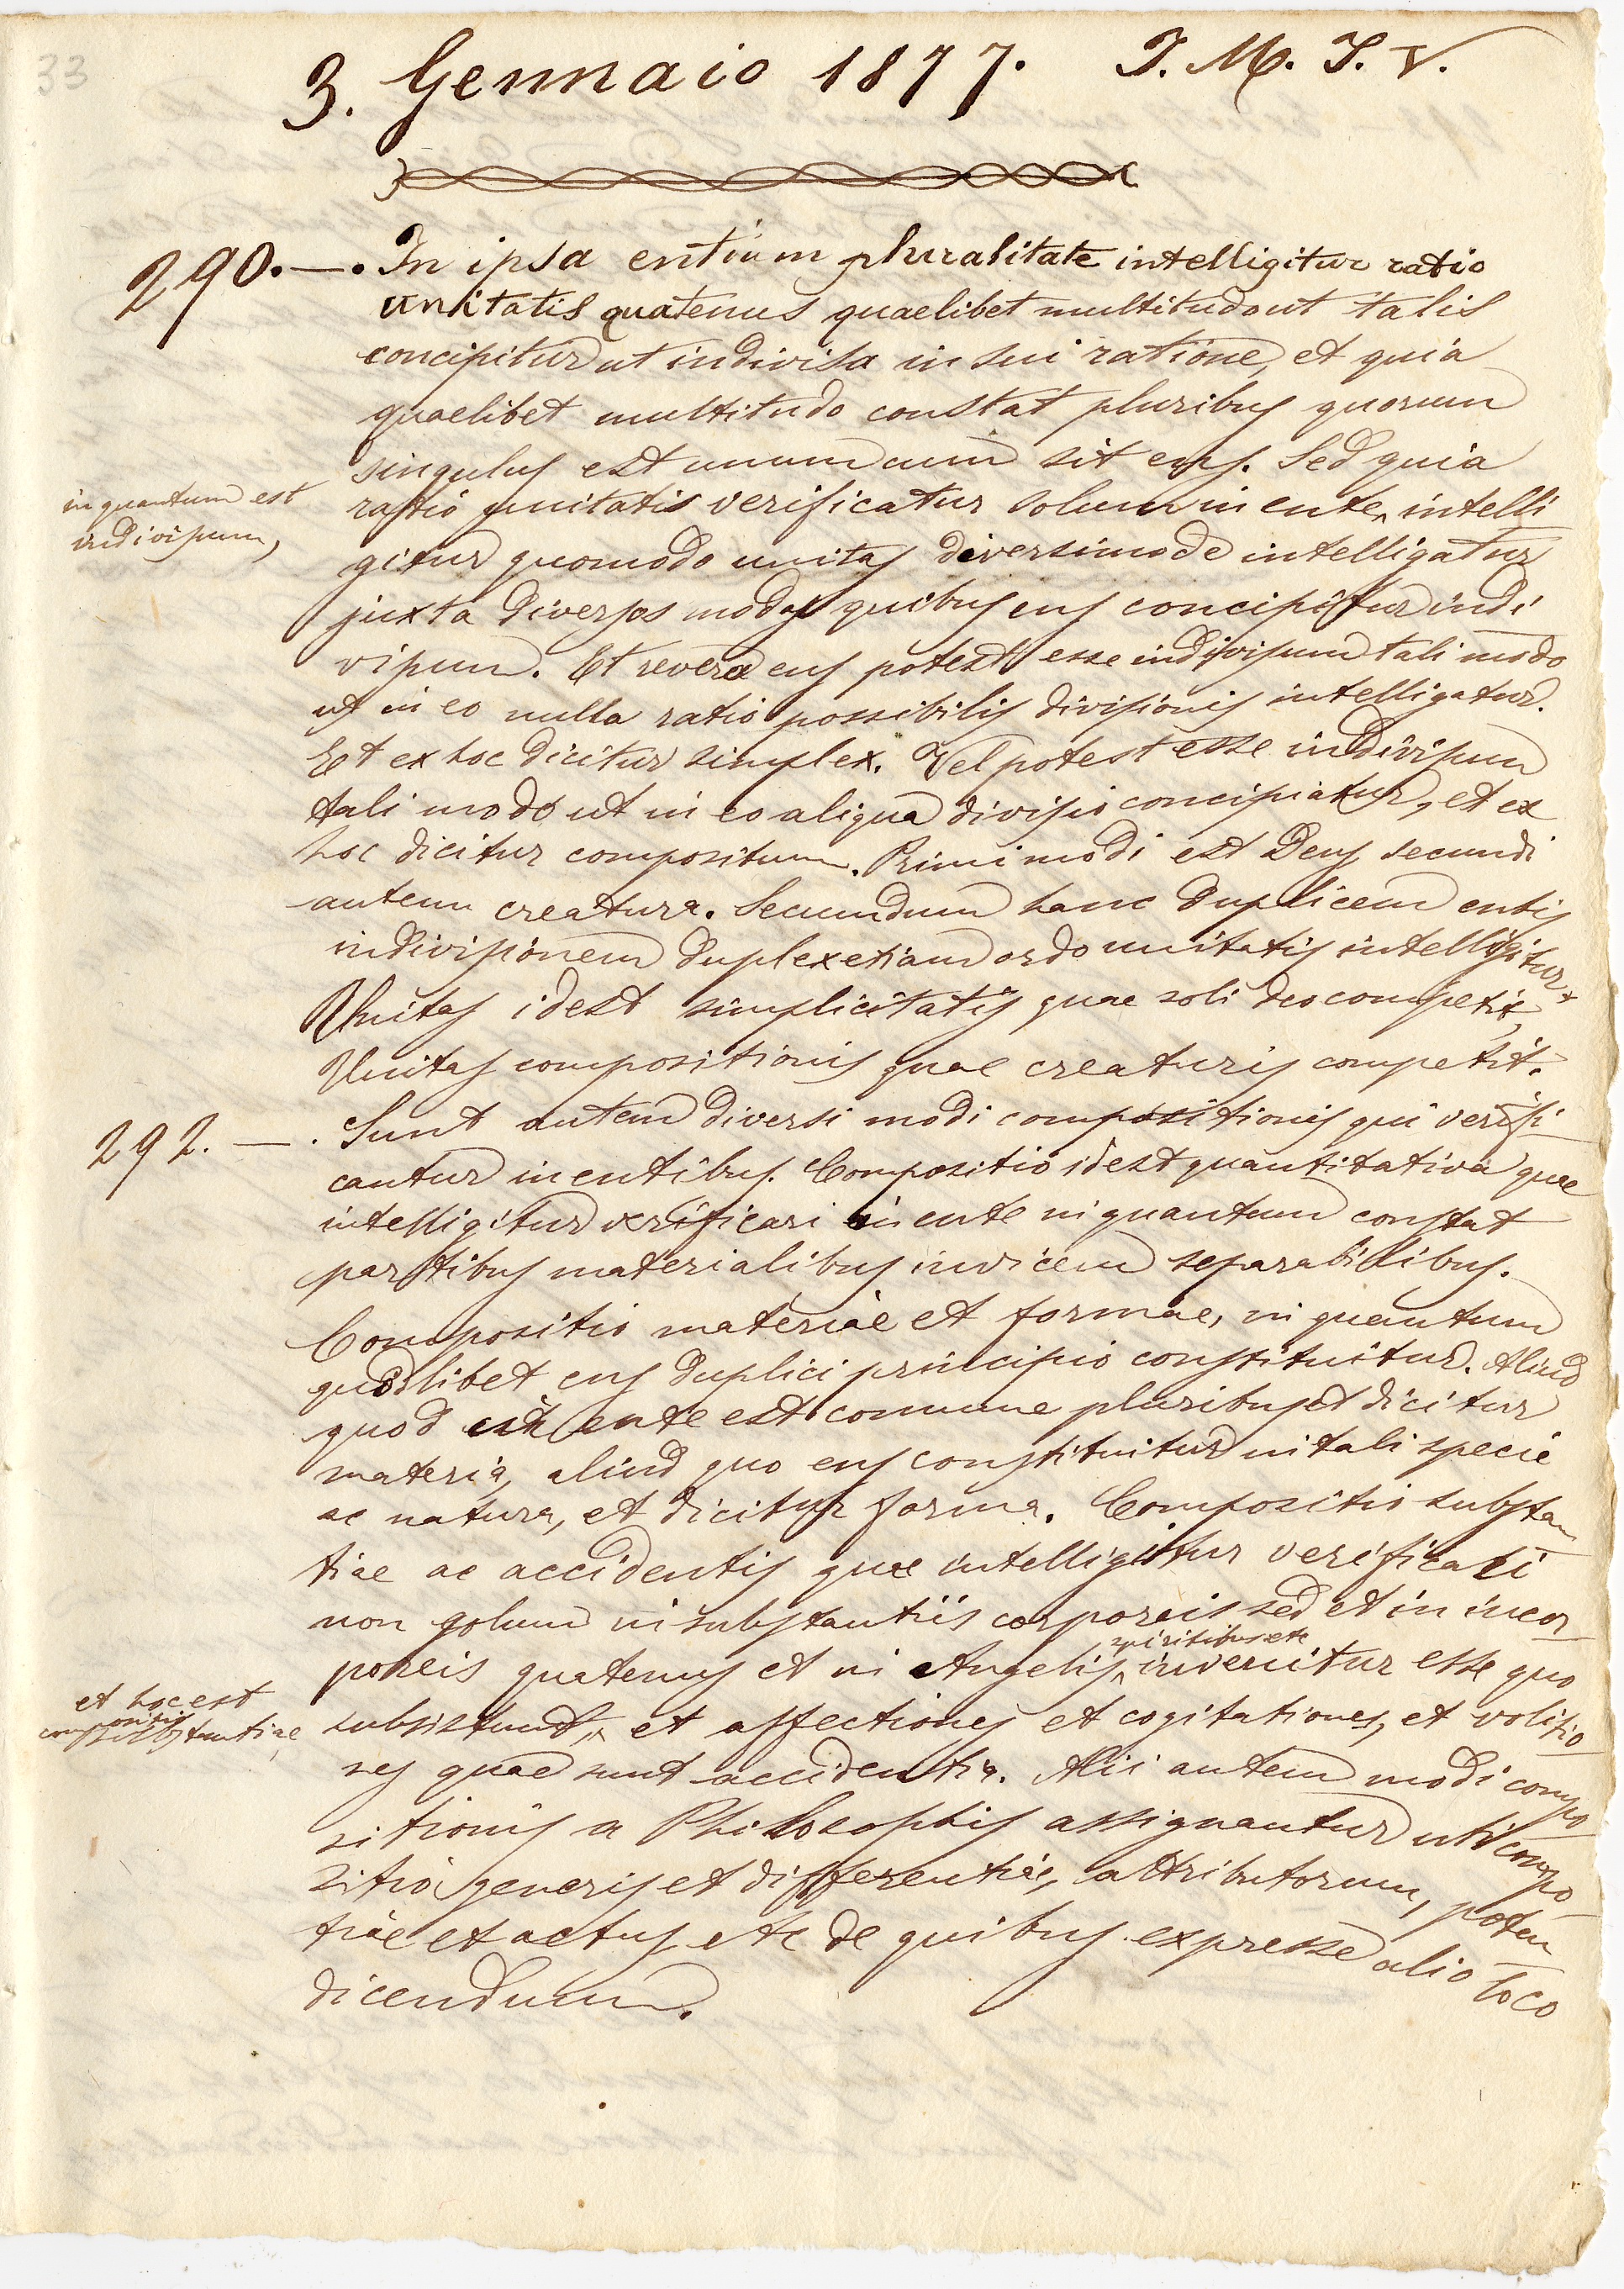 33
3. Gennaio 1877. J. M. J. V.
290. — . In ipsa entium pluralitate intelligitur ratio
unitatis quatenus quaelibet multitudo ut talis
concipitur ut indivisa in sui ratione, et quia
quaelibet multitudo constat pluribus quorum
singulus est unum cum sit ens. Sed quia
in quantum est
indivisum,
ratio unitatis verificatur solum in ente ^ intelli
gitur quomodo unitas diversimode intelligatur
juxta diversos modos quibus ens concipitur indi
visum. Et revera ens potest esse indivisum tali modo
ut in eo nulla ratio possibilis divisionis intelligatur.
Et ex hoc dicitur simplex. Vel potest esse indivisum
tali modo ut in eo aliqua divisio concipiatur, et ex
hoc dicitur compositum. Primi modi est Deus secundi
autem creatura. Secundum hanc duplicem entis
indivisionem duplex etiam ordo unitatis intelligitur
Unitas idest simplicitatis quae soli deo competit,
Unitas compositionis quae creaturis competit.
292. — . Sunt autem diversi modi compositionis qui verifi
cantur in entibus. Compositio idest quantitativa quae
intelligitur verificari in ente in quantum constat
partibus materialibus invicem separabilibus.
Compositio materiae et formae, in quantum
quodlibet ens duplici principio constituitur. Aliud
quod in ente est comune pluribus et dicitur
materia, aliud quo ens constituitur in tali specie
ac natura, et dicitur forma. Compositio substan
tiae ac accidentis quae intelligitur verificari
non solum in substantiis corporeis sed et in incor
spiritibus etc
poreis quatenus et in Angelis ^ invenitur esse quo
et hoc est
compositio
substantiae
subsistunt, ^ et affectiones et cogitationes, et volitio
nes quae sunt accidentia. Alii autem modi compo
sitionis a Philosophis assignantur uti compo
sitio generis et differentiae, attributorum, poten
tiae et actus etc de quibus expresse alio loco
dicendum.